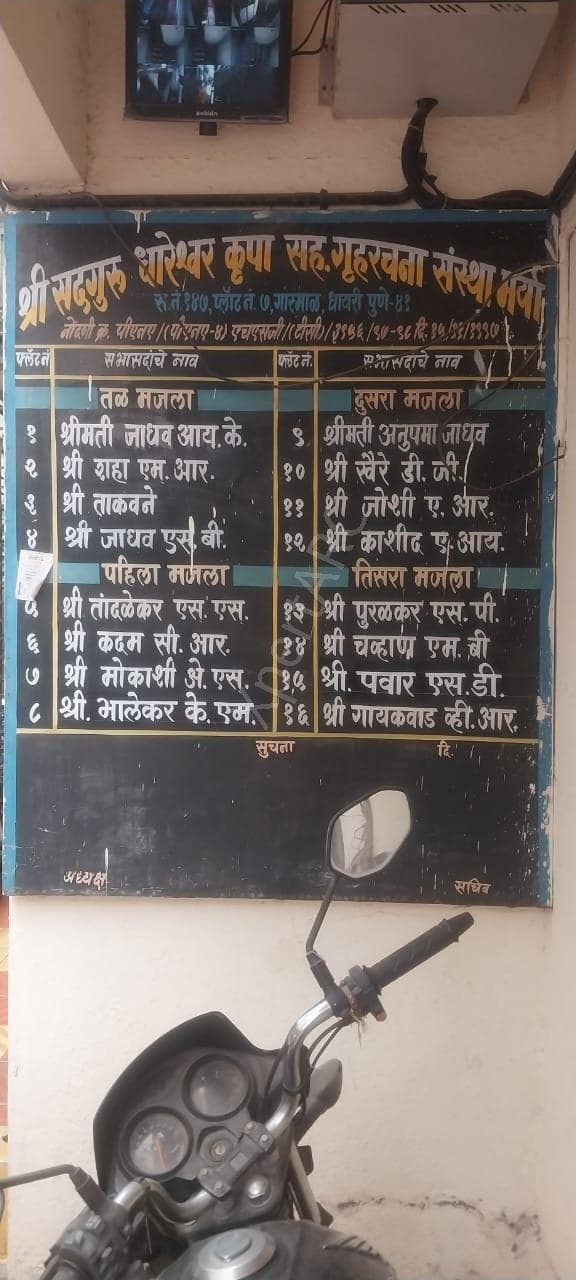 zebion
श्री सदगुरु धारेश्वर कृपा सह.गृहरचना संस्था.मर्या
स.नं १४७,प्लॉट नं. ७,गारमाळ, धायरी पुणे-४१
नोंदणी क्र. पीएनए/(पीएनए-४) एचएसजी/(टीसी)/३१५६/९७-९८ दि.
फ्लॅट नं सभासदांचे नाव फ्लॅट नं. सभासदांचे नाव
तळ मजला दुसरा मजला
१ श्रीमती जाधव आय.के. ९ श्रीमती अनुपमा जाधव
२ श्री शहा एम.आर. १० श्री खैरे डी.जी.
३ श्री ताकवने ११ श्री जोशी ए.आर.
४ श्री जाधव एस.बी. १२ श्री काशीद ए.आय.
पहिला मजला तिसरा मजला
५ श्री तांदळेकर एस.एस. १३ श्री पुरळकर एस.पी.
६ श्री कदम सी.आर. १४ श्री चव्हाण एम.बी
७ श्री मोकाशी जे.एस. १५ श्री. पवार एस.डी.
८ श्री. भालेकर के.एम. १६ श्री गायकवाड व्ही.आर.
सुचना दि.
अध्यक्ष सचिव